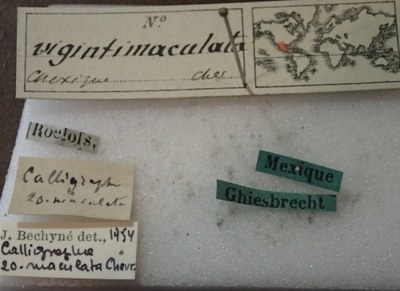 Nº
vigintimaculata
Mexique
chev.
Roelofs.
Calligrapha
20-maculata
Mexique
Ghiesbrecht
J. Bechyné det., 1954
Calligrapha
20-maculata Chevr.